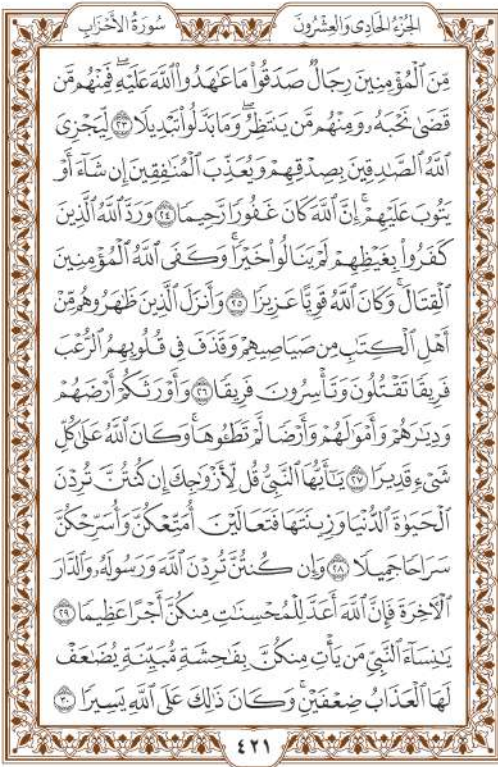 سُورَةُ الأَحْزَابِ الجُزْءُ الحَادِى وَالعِشْرُونَ
مِّنَ ٱلْمُؤْمِنِينَ رِجَالٌ صَدَقُوا۟ مَا عَـٰهَدُوا۟ ٱللَّهَ عَلَيْهِ ۖ فَمِنْهُم مَّن
قَضَىٰ نَحْبَهُۥ وَمِنْهُم مَّن يَنتَظِرُ ۖ وَمَا بَدَّلُوا۟ تَبْدِيلًا ٢٣ لِّيَجْزِىَ
ٱللَّهُ ٱلصَّـٰدِقِينَ بِصِدْقِهِمْ وَيُعَذِّبَ ٱلْمُنَـٰفِقِينَ إِن شَآءَ أَوْ
يَتُوبَ عَلَيْهِمْ ۚ إِنَّ ٱللَّهَ كَانَ غَفُورًا رَّحِيمًا ٢٤ وَرَدَّ ٱللَّهُ ٱلَّذِينَ
كَفَرُوا۟ بِغَيْظِهِمْ لَمْ يَنَالُوا۟ خَيْرًا ۚ وَكَفَى ٱللَّهُ ٱلْمُؤْمِنِينَ
ٱلْقِتَالَ ۚ وَكَانَ ٱللَّهُ قَوِيًّا عَزِيزًا ٢٥ وَأَنزَلَ ٱلَّذِينَ ظَـٰهَرُوهُم مِّنْ
أَهْلِ ٱلْكِتَـٰبِ مِن صَيَاصِيهِمْ وَقَذَفَ فِى قُلُوبِهِمُ ٱلرُّعْبَ
فَرِيقًا تَقْتُلُونَ وَتَأْسِرُونَ فَرِيقًا ٢٦ وَأَوْرَثَكُمْ أَرْضَهُمْ
وَدِيَـٰرَهُمْ وَأَمْوَٰلَهُمْ وَأَرْضًا لَّمْ تَطَـُٔوهَا ۚ وَكَانَ ٱللَّهُ عَلَىٰ كُلِّ
شَىْءٍ قَدِيرًا ٢٧ يَـٰٓأَيُّهَا ٱلنَّبِىُّ قُل لِّأَزْوَٰجِكَ إِن كُنتُنَّ تُرِدْنَ
ٱلْحَيَوٰةَ ٱلدُّنْيَا وَزِينَتَهَا فَتَعَالَيْنَ أُمَتِّعْكُنَّ وَأُسَرِّحْكُنَّ
سَرَاحًا جَمِيلًا ٢٨ وَإِن كُنتُنَّ تُرِدْنَ ٱللَّهَ وَرَسُولَهُۥ وَٱلدَّارَ
ٱلْـَٔاخِرَةَ فَإِنَّ ٱللَّهَ أَعَدَّ لِلْمُحْسِنَـٰتِ مِنكُنَّ أَجْرًا عَظِيمًا ٢٩
يَـٰنِسَآءَ ٱلنَّبِىِّ مَن يَأْتِ مِنكُنَّ بِفَـٰحِشَةٍ مُّبَيِّنَةٍ يُضَـٰعَفْ
لَهَا ٱلْعَذَابُ ضِعْفَيْنِ ۚ وَكَانَ ذَٰلِكَ عَلَى ٱللَّهِ يَسِيرًا ٣٠
٤٢١